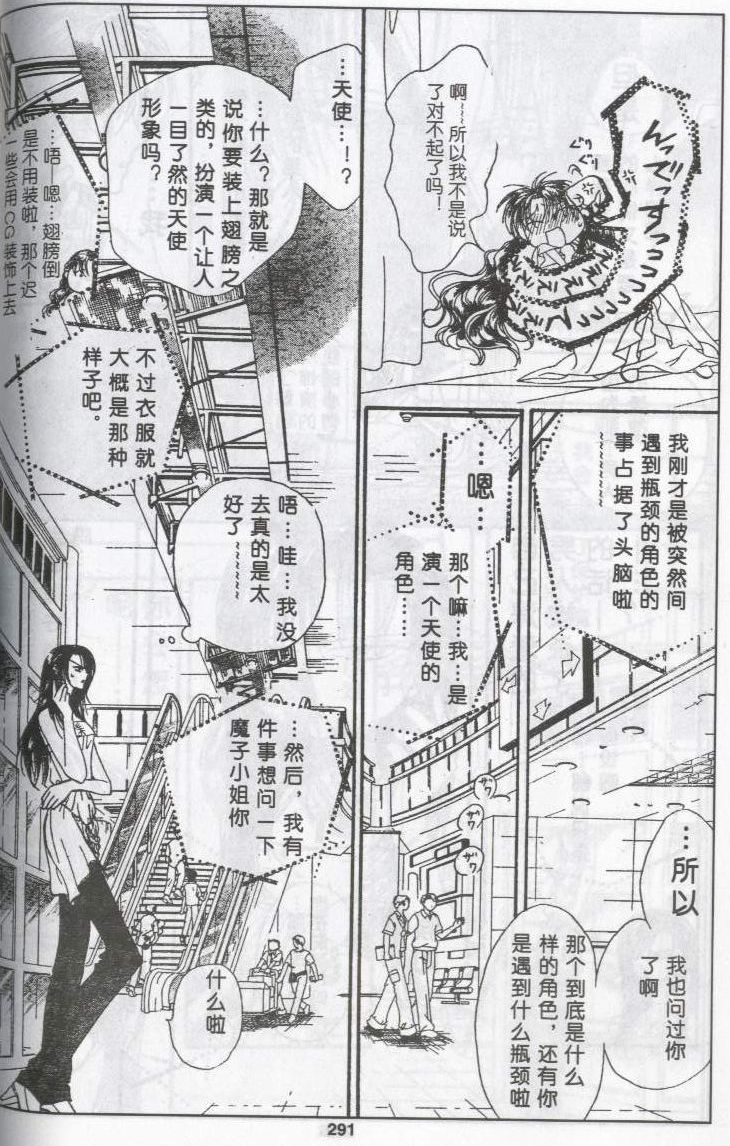 んっでっすっっっっ
ええええええ
っっっっっっ
啊~~~所以我不是说
了对不起了吗!
我刚才是被突然间
遇到瓶颈的角色的
事占据了头脑啦
~~~~~~~
…嗯…
那个嘛…我…是
演一个天使的
角色……
…所以
我也问过你
了啊
那个到底是什么
样的角色，还有你
是遇到什么瓶颈啦
ザワ
ザワ
ザワ
…天使…!?
…什么?那就是
说你要装上翅膀之
类的，扮演一个让人
一目了然的天使
形象吗?
…唔—嗯…翅膀倒
是不用装啦，那个迟
一些会用CG装饰上去
不过衣服就
大概是那种
样子吧。
唔…哇…我没
去真的是太
好了~~~~~
…然后，我有
件事想问一下
魔子小姐你
什么啦
291